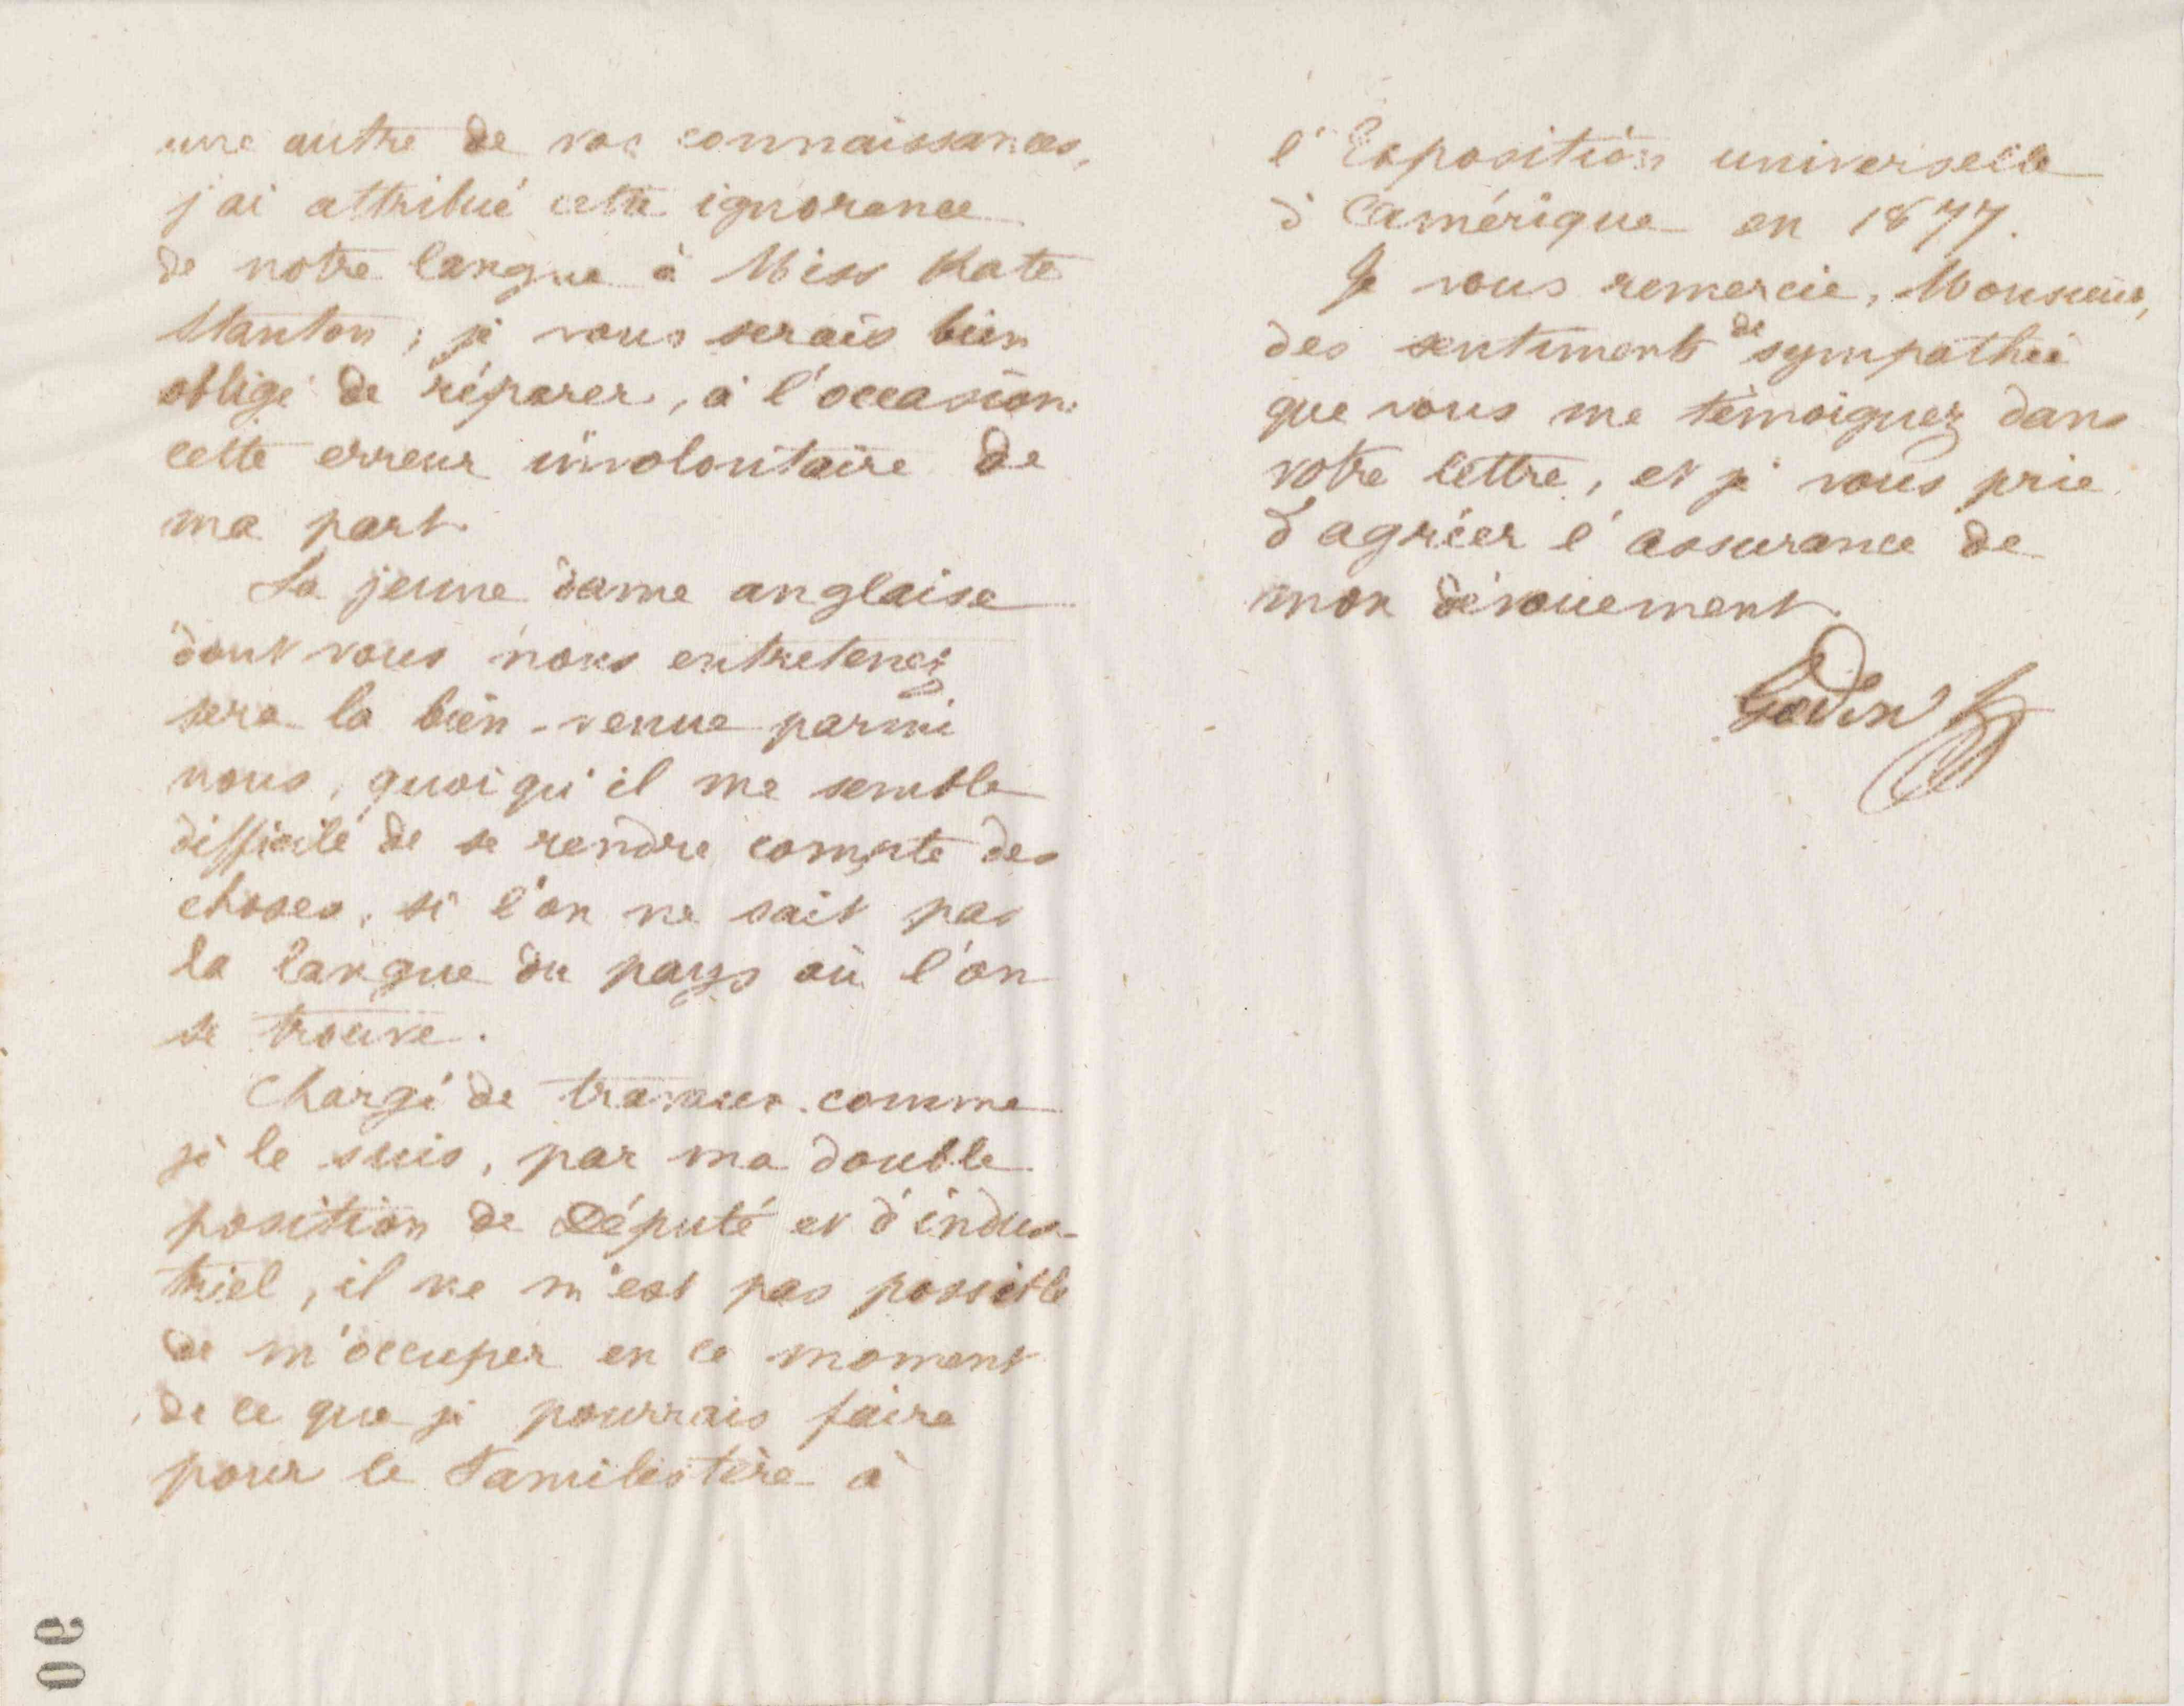 une autre de vos connaissances,
j'ai attribué cette ignorance
de notre langue à Miss Kate
Stanton ; je vous serais bien
obligé de réparer, à l'occasion,
cette erreur involontaire de
ma part.
La jeune dame anglaise
dont vous nous entretenez
sera la bien-venue parmi
nous, quoiqu'il me semble
difficile de se rendre compte des
choses, si l'on ne sait pas
la langue du pays où l'on
se trouve.
Chargé de travaux comme
je le suis, par ma double
position de Député et d'indus-
triel, il ne m'est pas possible
de m'occuper en ce moment
de ce que je pourrais faire
pour le Familistère à
90
l'Exposition universelle
d'Amérique en 1877.
Je vous remercie, Monsieur,
des sentiments de sympathie
que vous me témoignez dans
votre lettre, et je vous prie
d'agréer l'assurance de
mon dévouement.
Godin